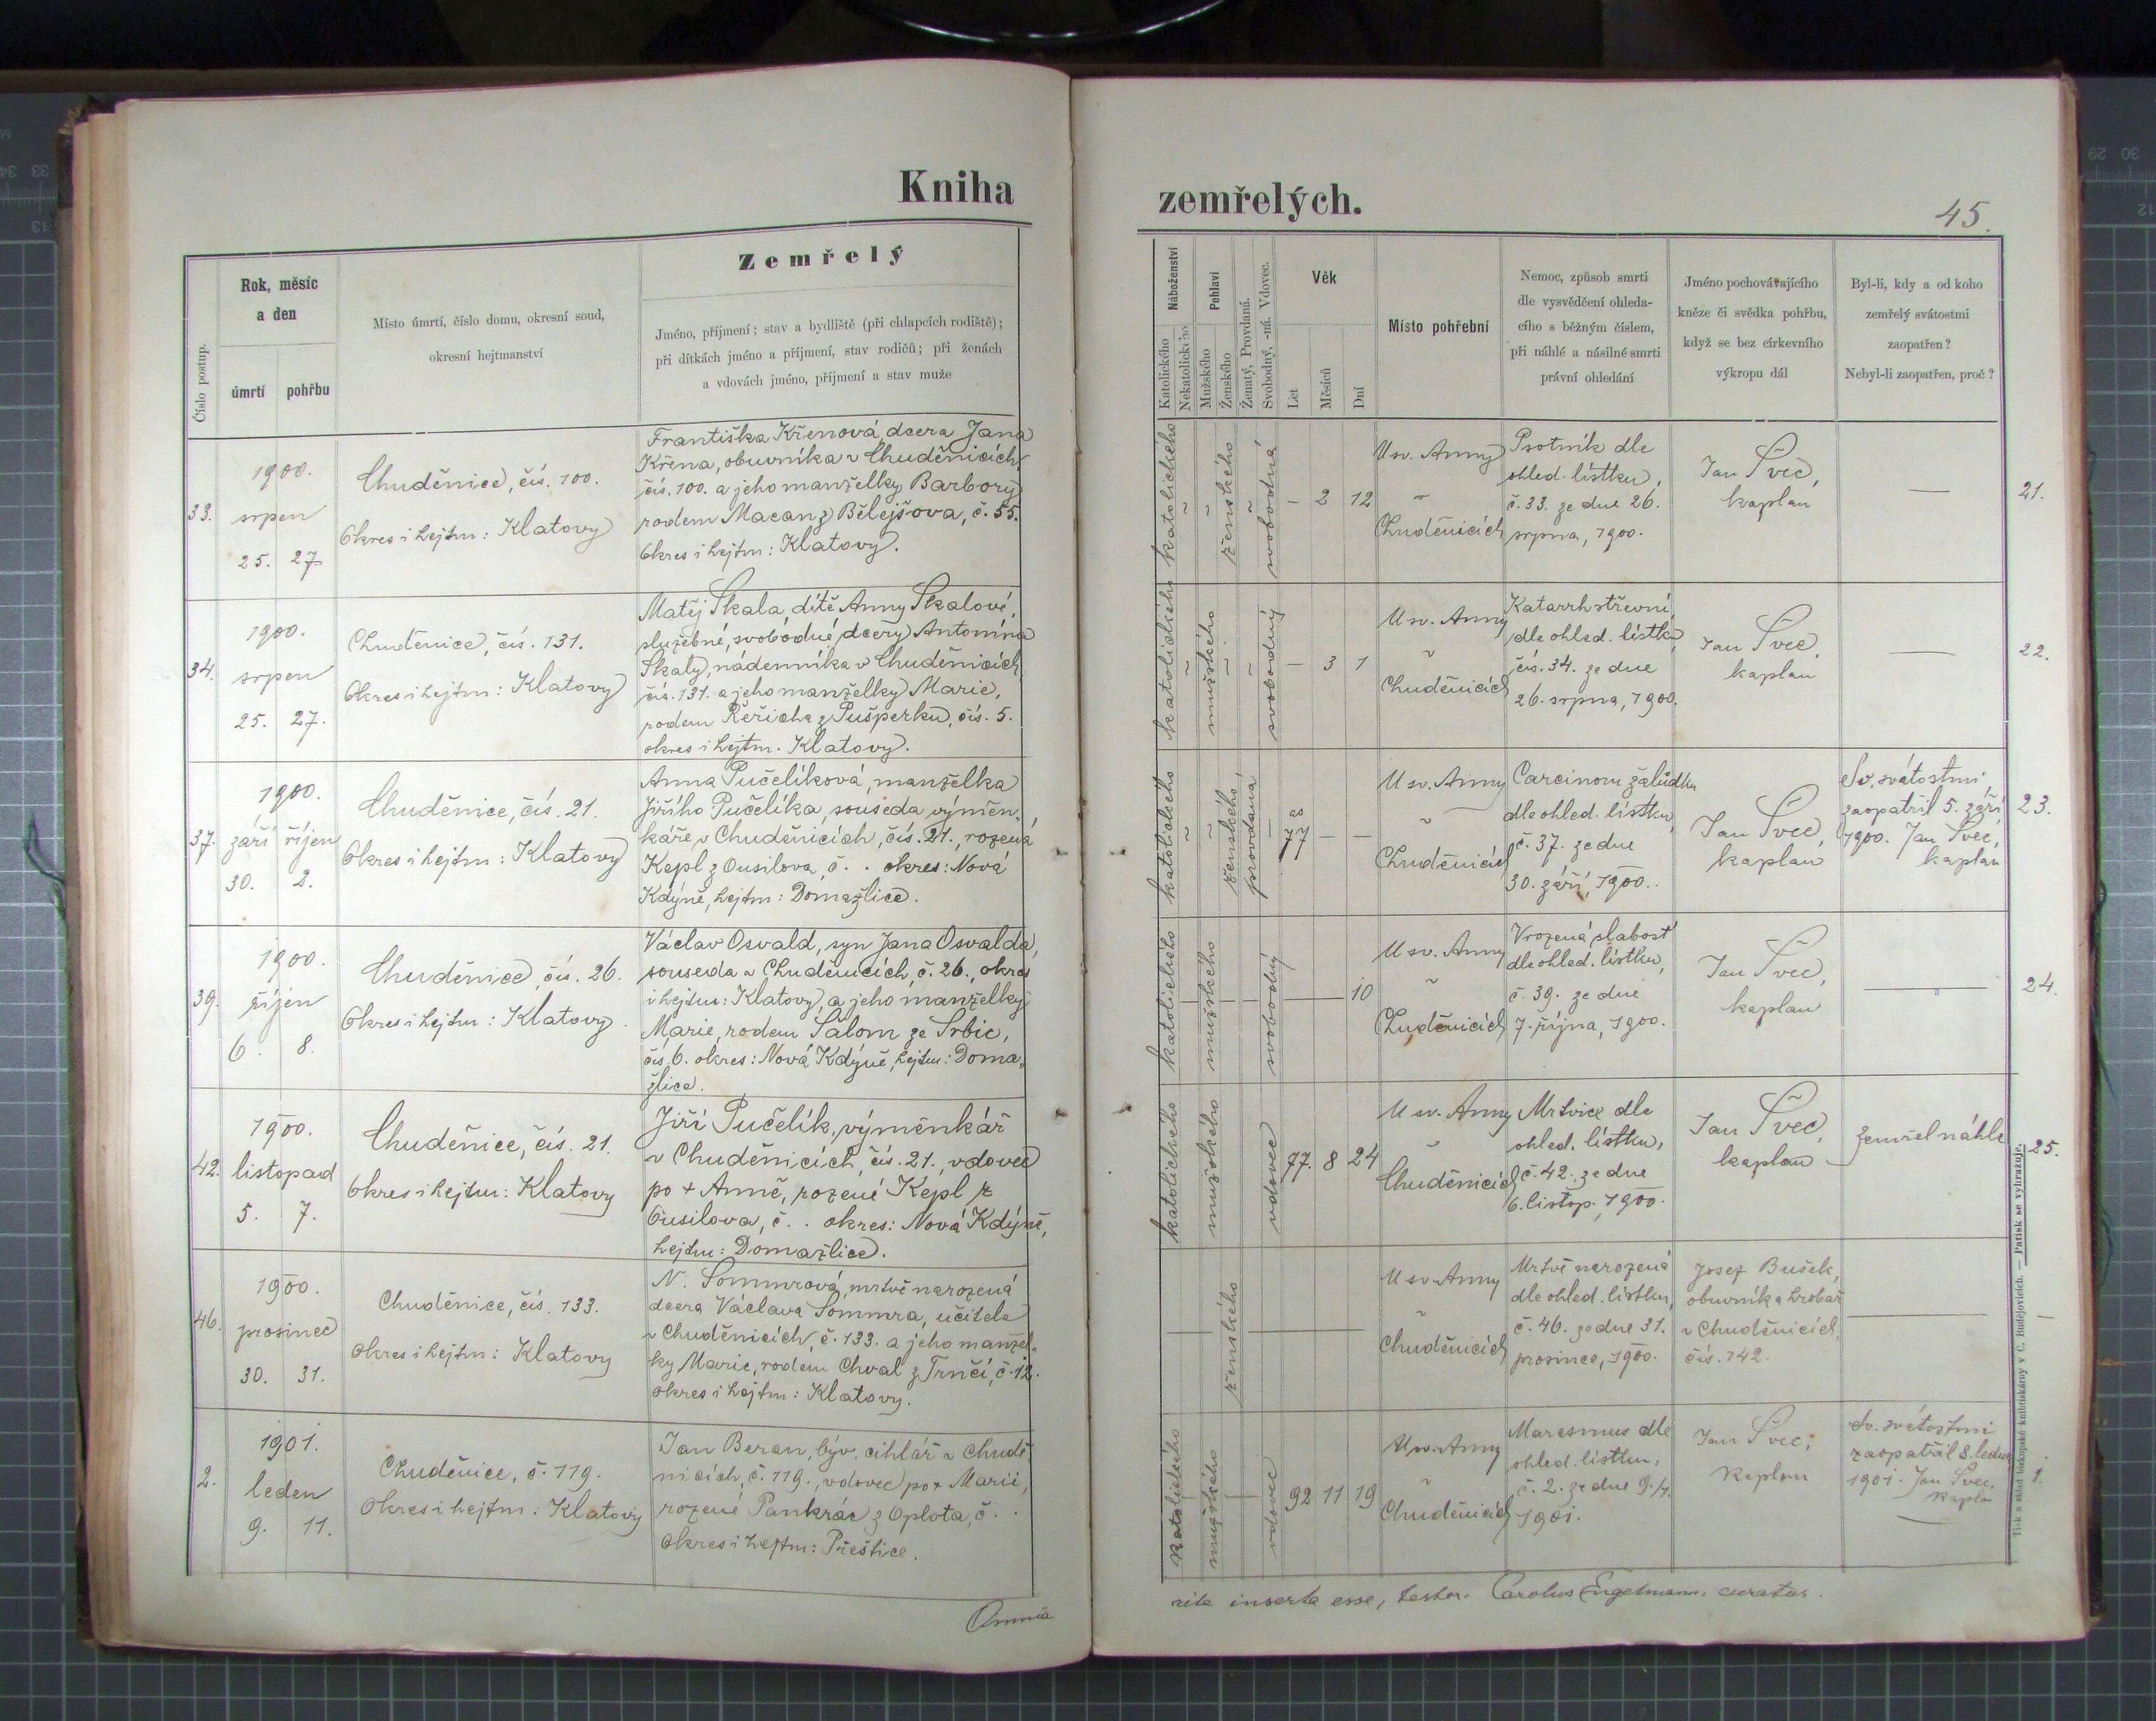 Kniha
zemřelých.
45.
Číslo postup.
Rok, měsíc
a den
úmrtí
pohřbu
Místo úmrtí, číslo domu, okresní soud,
okresní hejtmanství
Zemřelý
Jméno, příjmení; stav a bydliště (při chlapcích rodiště);
při dítkách jméno a příjmení, stav rodičů; při ženách
a vdovách jméno, příjmení a stav muže
Náboženství
Katolického
Nekatolického
Pohlaví
Mužského
Ženského
Ženatý, Provdaná.
Svobodný, -ná. Vdovec.
Věk
Let
Měsíců
Dní
Místo pohřební
Nemoc, způsob smrti
dle vysvědčení ohleda-
cího s běžným číslem,
při náhlé a násilné smrti
právní ohledání
Jméno pochovávajícího
kněze či svědka pohřbu,
když se bez církevního
výkropu dál
Byl-li, kdy a od koho
zemřelý svátostmi
zaopatřen?
Nebyl-li zaopatřen, proč?
33.
1900.
srpen
25. 27.
Chuděnice, čís. 100.
Okres i hejtm: Klatovy
Františka Křenová, dcera Jana
Křena, obuvníka v Chuděnicích
čís. 100. a jeho manželky Barbory
rodem Macan z Bělejšova, č. 55.
Okres i hejtm: Klatovy.
katolického
ženského
svobodná
– 2 12
U sv. Anny
v
Chuděnicích
Psotník dle
ohled. lístku,
č. 33. ze dne 26.
srpna, 1900.
Jan Švec,
kaplan
—
21.
34.
1900.
srpen
25. 27.
Chuděnice, čís. 131.
Okres i hejtm: Klatovy
Matěj Skala, dítě Anny Skalové,
služebné, svobodné dcery Antonína
Skaly, nádenníka v Chuděnicích
čís. 131. a jeho manželky Marie,
rodem Řeřicha z Pušperku, čís. 5.
okres i hejtm. Klatovy.
katolického
mužského
svobodný
– 3 1
U sv. Anny
v
Chuděnicích
Katarrh střevní,
dle ohled. lístku,
čís. 34. ze dne
26. srpna, 1900.
Jan Švec,
kaplan
—
22.
37.
1900.
září říjen
30. 2.
Chuděnice, čís. 21.
Okres i hejtm: Klatovy
Anna Pučelíková, manželka
Jiřího Pučelíka, souseda, výměn-
káře v Chuděnicích, čís. 21., rozená
Kepl z Ousilova, č. . okres: Nová
Kdýně, hejtm: Domažlice.
katolického
ženského
provdaná
77 – –
U sv. Anny
v
Chuděnicích
Carcinom žalůdku
dle ohled. lístku,
č. 37. ze dne
30. září, 1900.
Jan Švec,
kaplan
Sv. svátostmi
zaopatřil 5. září
1900. Jan Švec,
kaplan
23.
39.
1900.
říjen
6. 8.
Chuděnice, čís. 26.
Okres i hejtm: Klatovy.
Václav Osvald, syn Jana Osvalda,
souseda v Chuděnicích, č. 26., okres
i hejtm: Klatovy, a jeho manželky
Marie, rodem Šalom ze Srbic,
čís. 6. okres: Nová Kdýně, hejtm: Doma-
žlice.
katolického
mužského
svobodný
10
U sv. Anny
v
Chuděnicích
Vrozená slabost
dle ohled. lístku,
č. 39. ze dne
7. října, 1900.
Jan Švec,
kaplan
—
24.
42.
1900.
listopad
5. 7.
Chuděnice, čís. 21.
Okres i hejtm: Klatovy
Jiří Pučelík, výměnkář
v Chuděnicích, čís. 21., vdovec
po + Anně, rozené Kepl z
Ousilova, č. . okres: Nová Kdýně,
hejtm: Domažlice.
katolického
mužského
vdovec
77. 8 24
U sv. Anny
v
Chuděnicích
Mrtvice dle
ohled. lístku,
č. 42. ze dne
6. listop. 1900.
Jan Švec,
kaplan
zemřel náhle
25.
46.
1900.
prosinec
30. 31.
Chuděnice, čís. 133.
Okres i hejtm: Klatovy
N. Sommrová, mrtvě narozená
dcera Václava Sommra, učitele
v Chuděnicích, č. 133. a jeho manžel-
ky Marie, rodem Chval z Trnčí, č. 12.
okres i hejtm: Klatovy.
ženského
U sv. Anny
v
Chuděnicích
Mrtvě narozená
dle ohled. lístku,
č. 46. ze dne 31.
prosince, 1900.
Josef Bušek,
obuvník a hrobař
v Chuděnicích,
čís. 142.
—
—
2.
1901.
leden
9. 11.
Chuděnice, č. 119.
Okres i hejtm: Klatovy
Jan Beran, býv. cihlář v Chudě-
nicích, č. 119., vdovec po + Marii,
rozené Pankrác z Oplota, č. .
Okres i hejtm: Přeštice.
katolického
mužského
vdovec
92 11 19
U sv. Anny
v
Chuděnicích
Marasmus dle
ohled. lístku,
č. 2. ze dne 9./1.
1901.
Jan Švec,
kaplan
Sv. svátostmi
zaopatřil 8. ledna
1901. Jan Švec,
kaplan
1.
Omnia
rite inserta esse, testor. Carolus Engelmann, curatus.
Tisk a sklad biskupské knihtiskárny v Č. Budějovicích. — Patisk se vyhražuje.